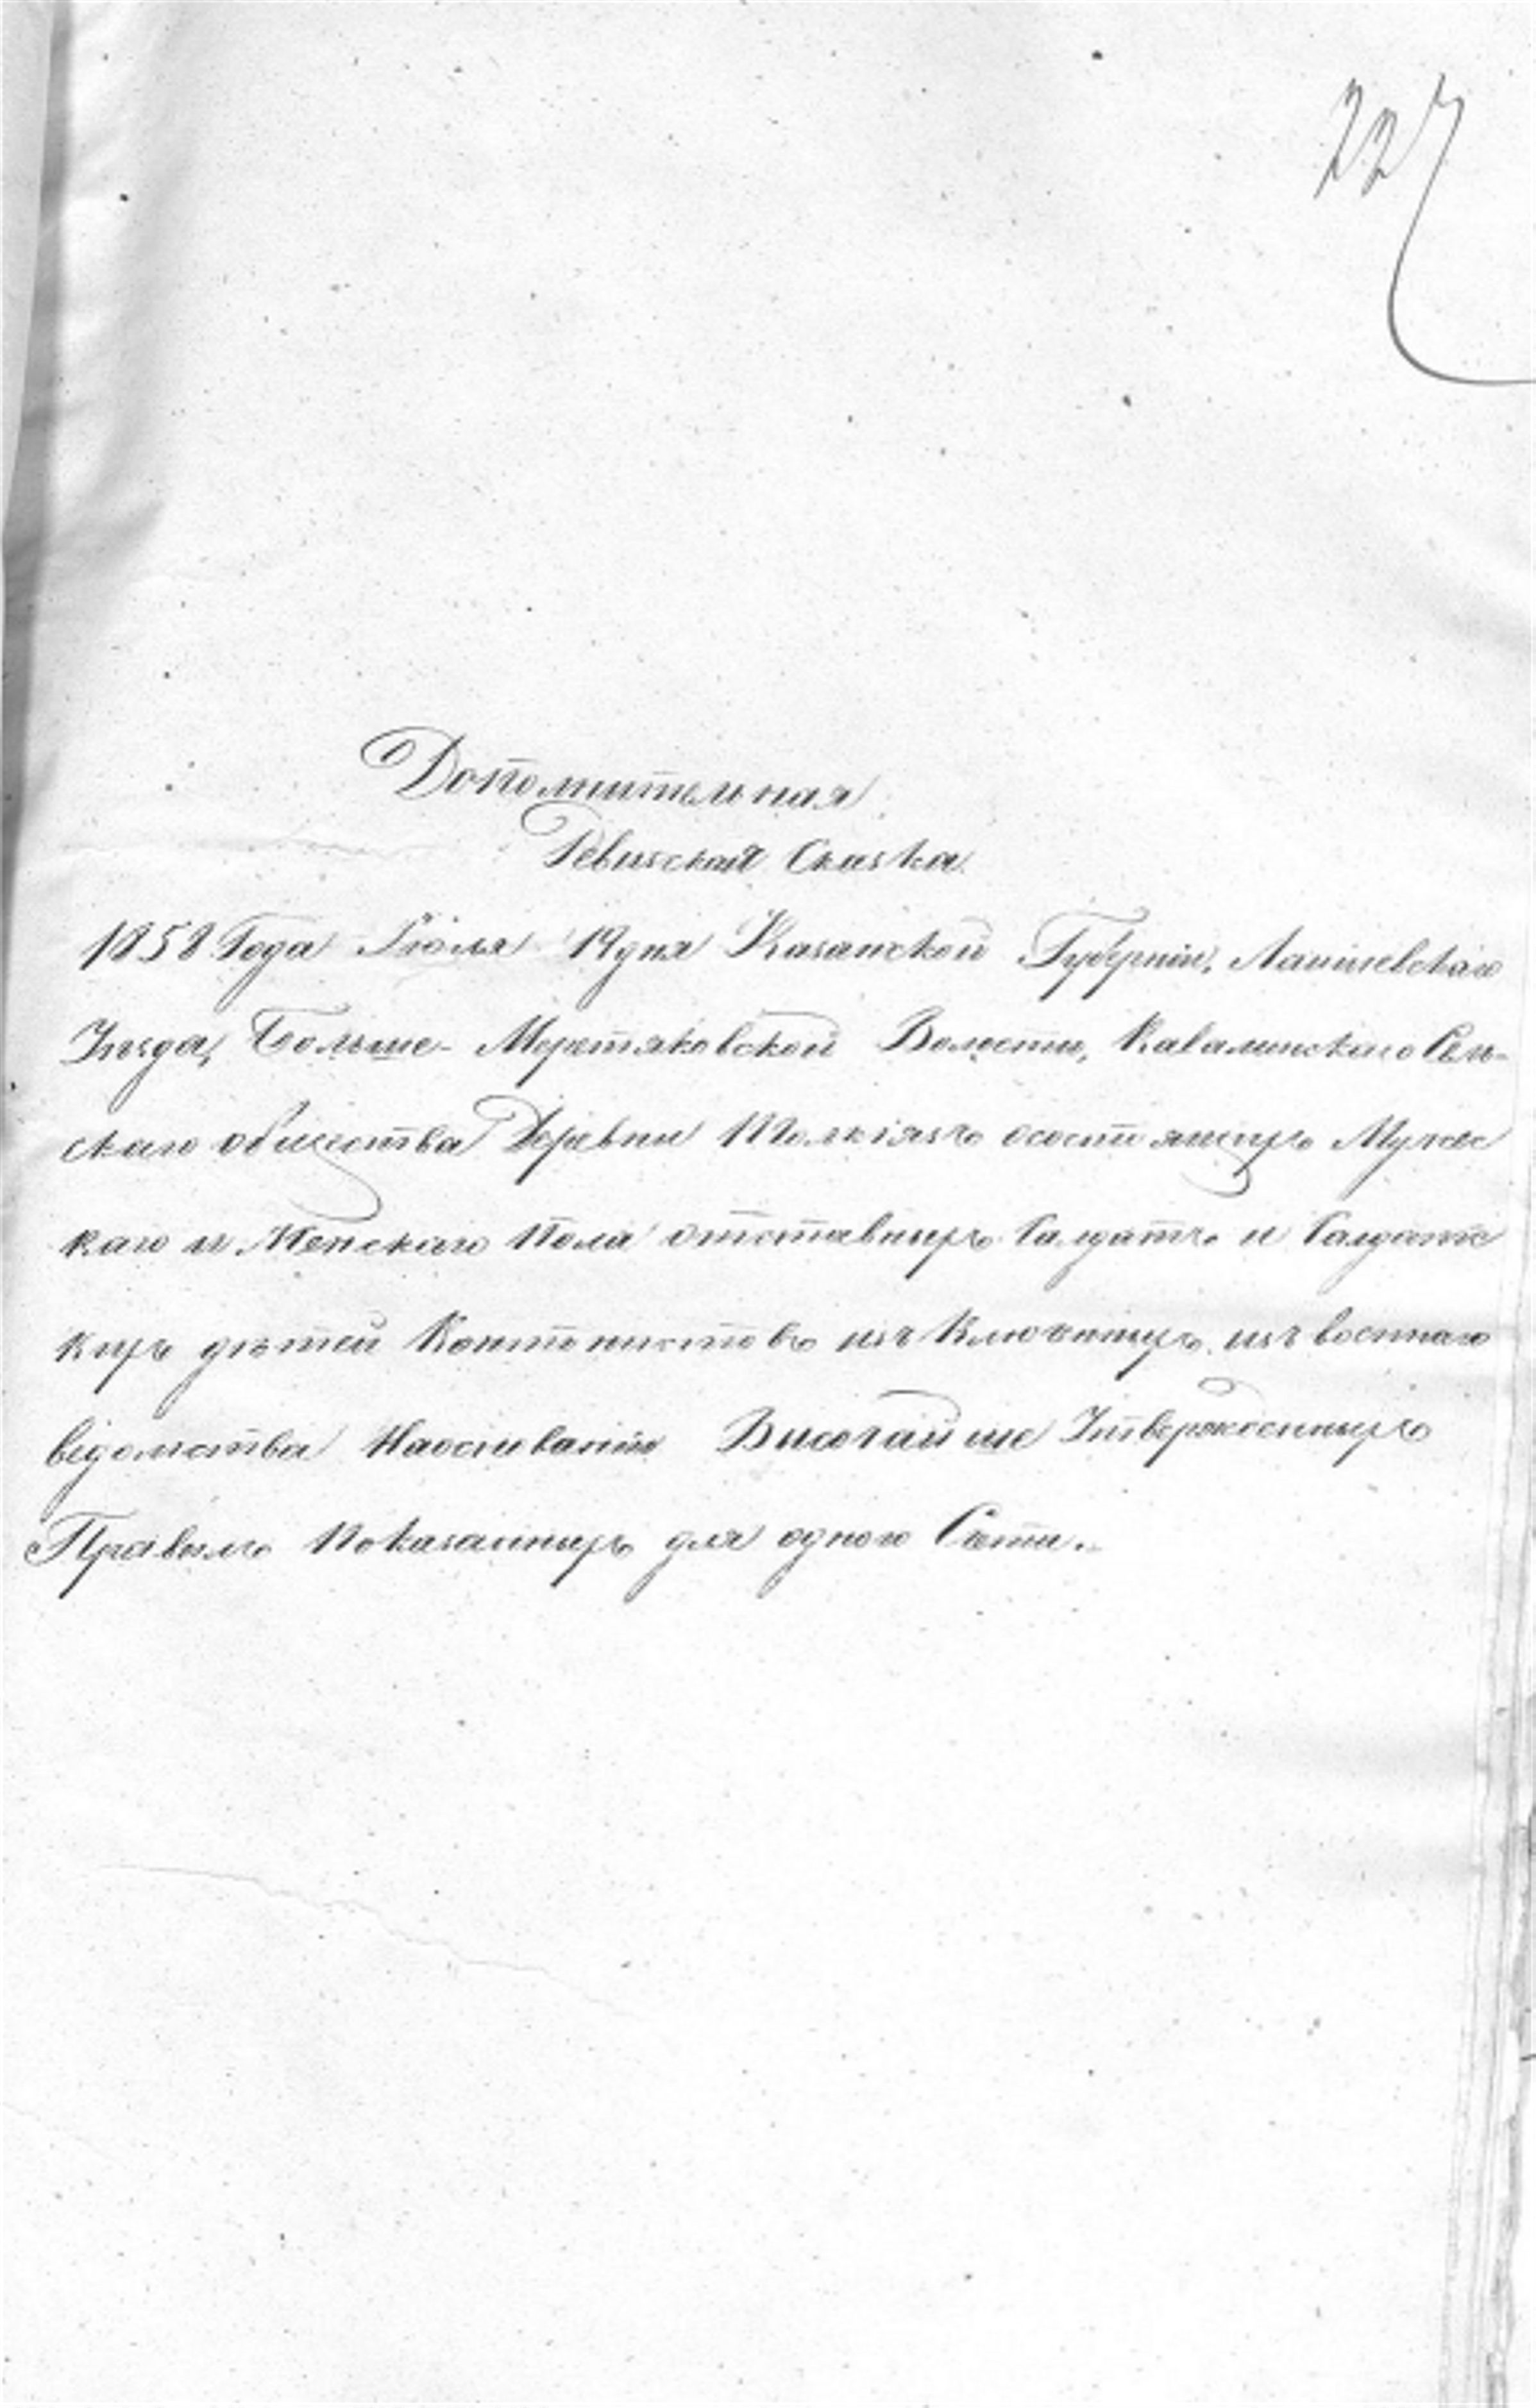 227
Дополнительная
Ревизская Сказка
1858 Года Июля 19 дня Казанской Губерніи, Лаишевскаго
Уѣзда, Больше-Меретяковской Волости, Кавалинскаго Сель-
скаго общества Деревни Толкіязъ осостоящихъ Мужес
каго и Женскаго Пола отставныхъ Салдатъ и Салдатс
кихъ дѣтей Контонистовъ изъ Ключнныхъ изъ военнаго
вѣдомства Наоснованіи Высочайше Утвержденныхъ
Правилъ Показанныхъ для одного Счета.